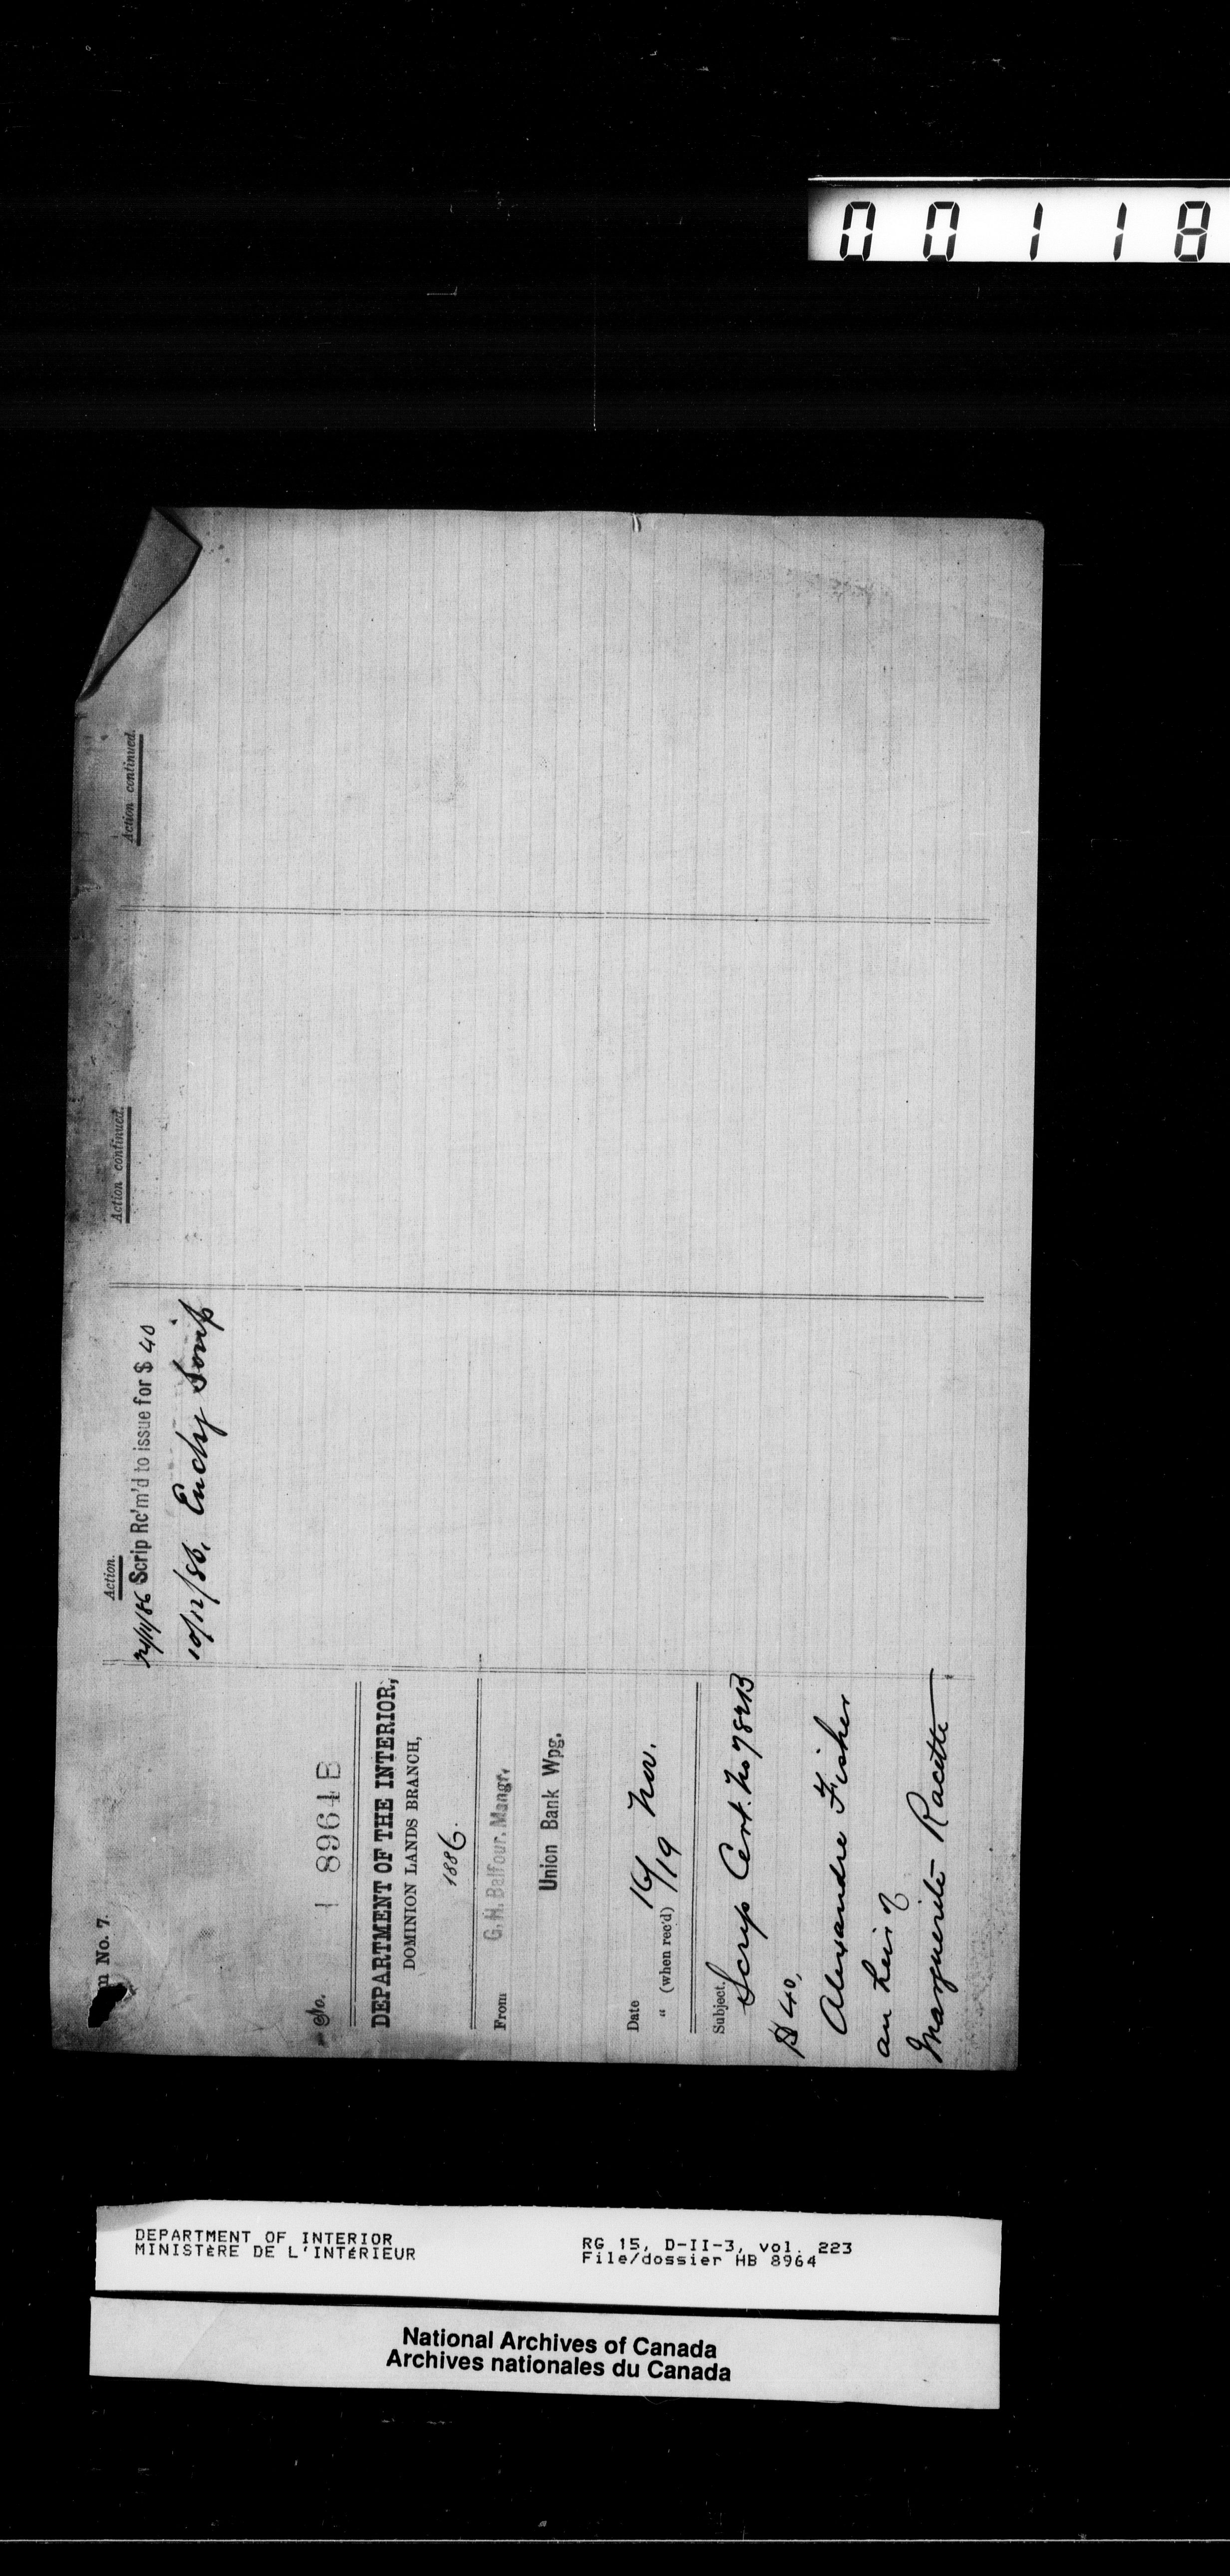 00118
Form No. 7.
No. 18964B
DEPARTMENT OF THE INTERIOR,
DOMINION LANDS BRANCH,
1886.
From G. H. Balfour. Mangr.
Union Bank Wpg.
Date 16/ Nov.
" (when rec'd) /19
Subject.
Scrip Cert. No 782B
$40,
Alexandre Fisher
an heir of
Marguerite Racette
Action.
/11/86 Scrip Rc'm'd to issue for $ 40
10/12/86, Encly Scrip
Action continued.
Action continued.
DEPARTMENT OF INTERIOR
MINISTÈRE DE L'INTÉRIEUR
RG 15, D-II-3, vol. 223
File/dossier HB 8964
National Archives of Canada
Archives nationales du Canada